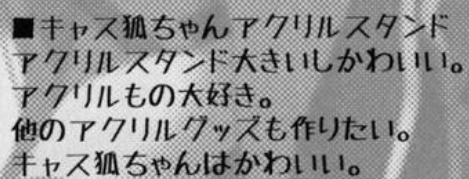 ■キャス狐ちゃんアクリルスタンド
アクリルスタンド大きいしかわいい。
アクリルもの大好き。
他のアクリルグッズも作りたい。
キャス狐ちゃんはかわいい。